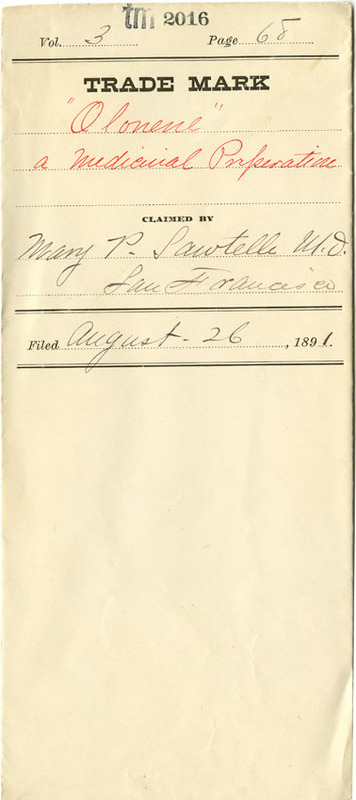 tm 2016
Vol. 3 Page 68
TRADE MARK
"Olonene"
a Medicinal Preperation
CLAIMED BY
Mary P. Sawtelle M.D.
San Francisco
Filed August - 26, 1891.